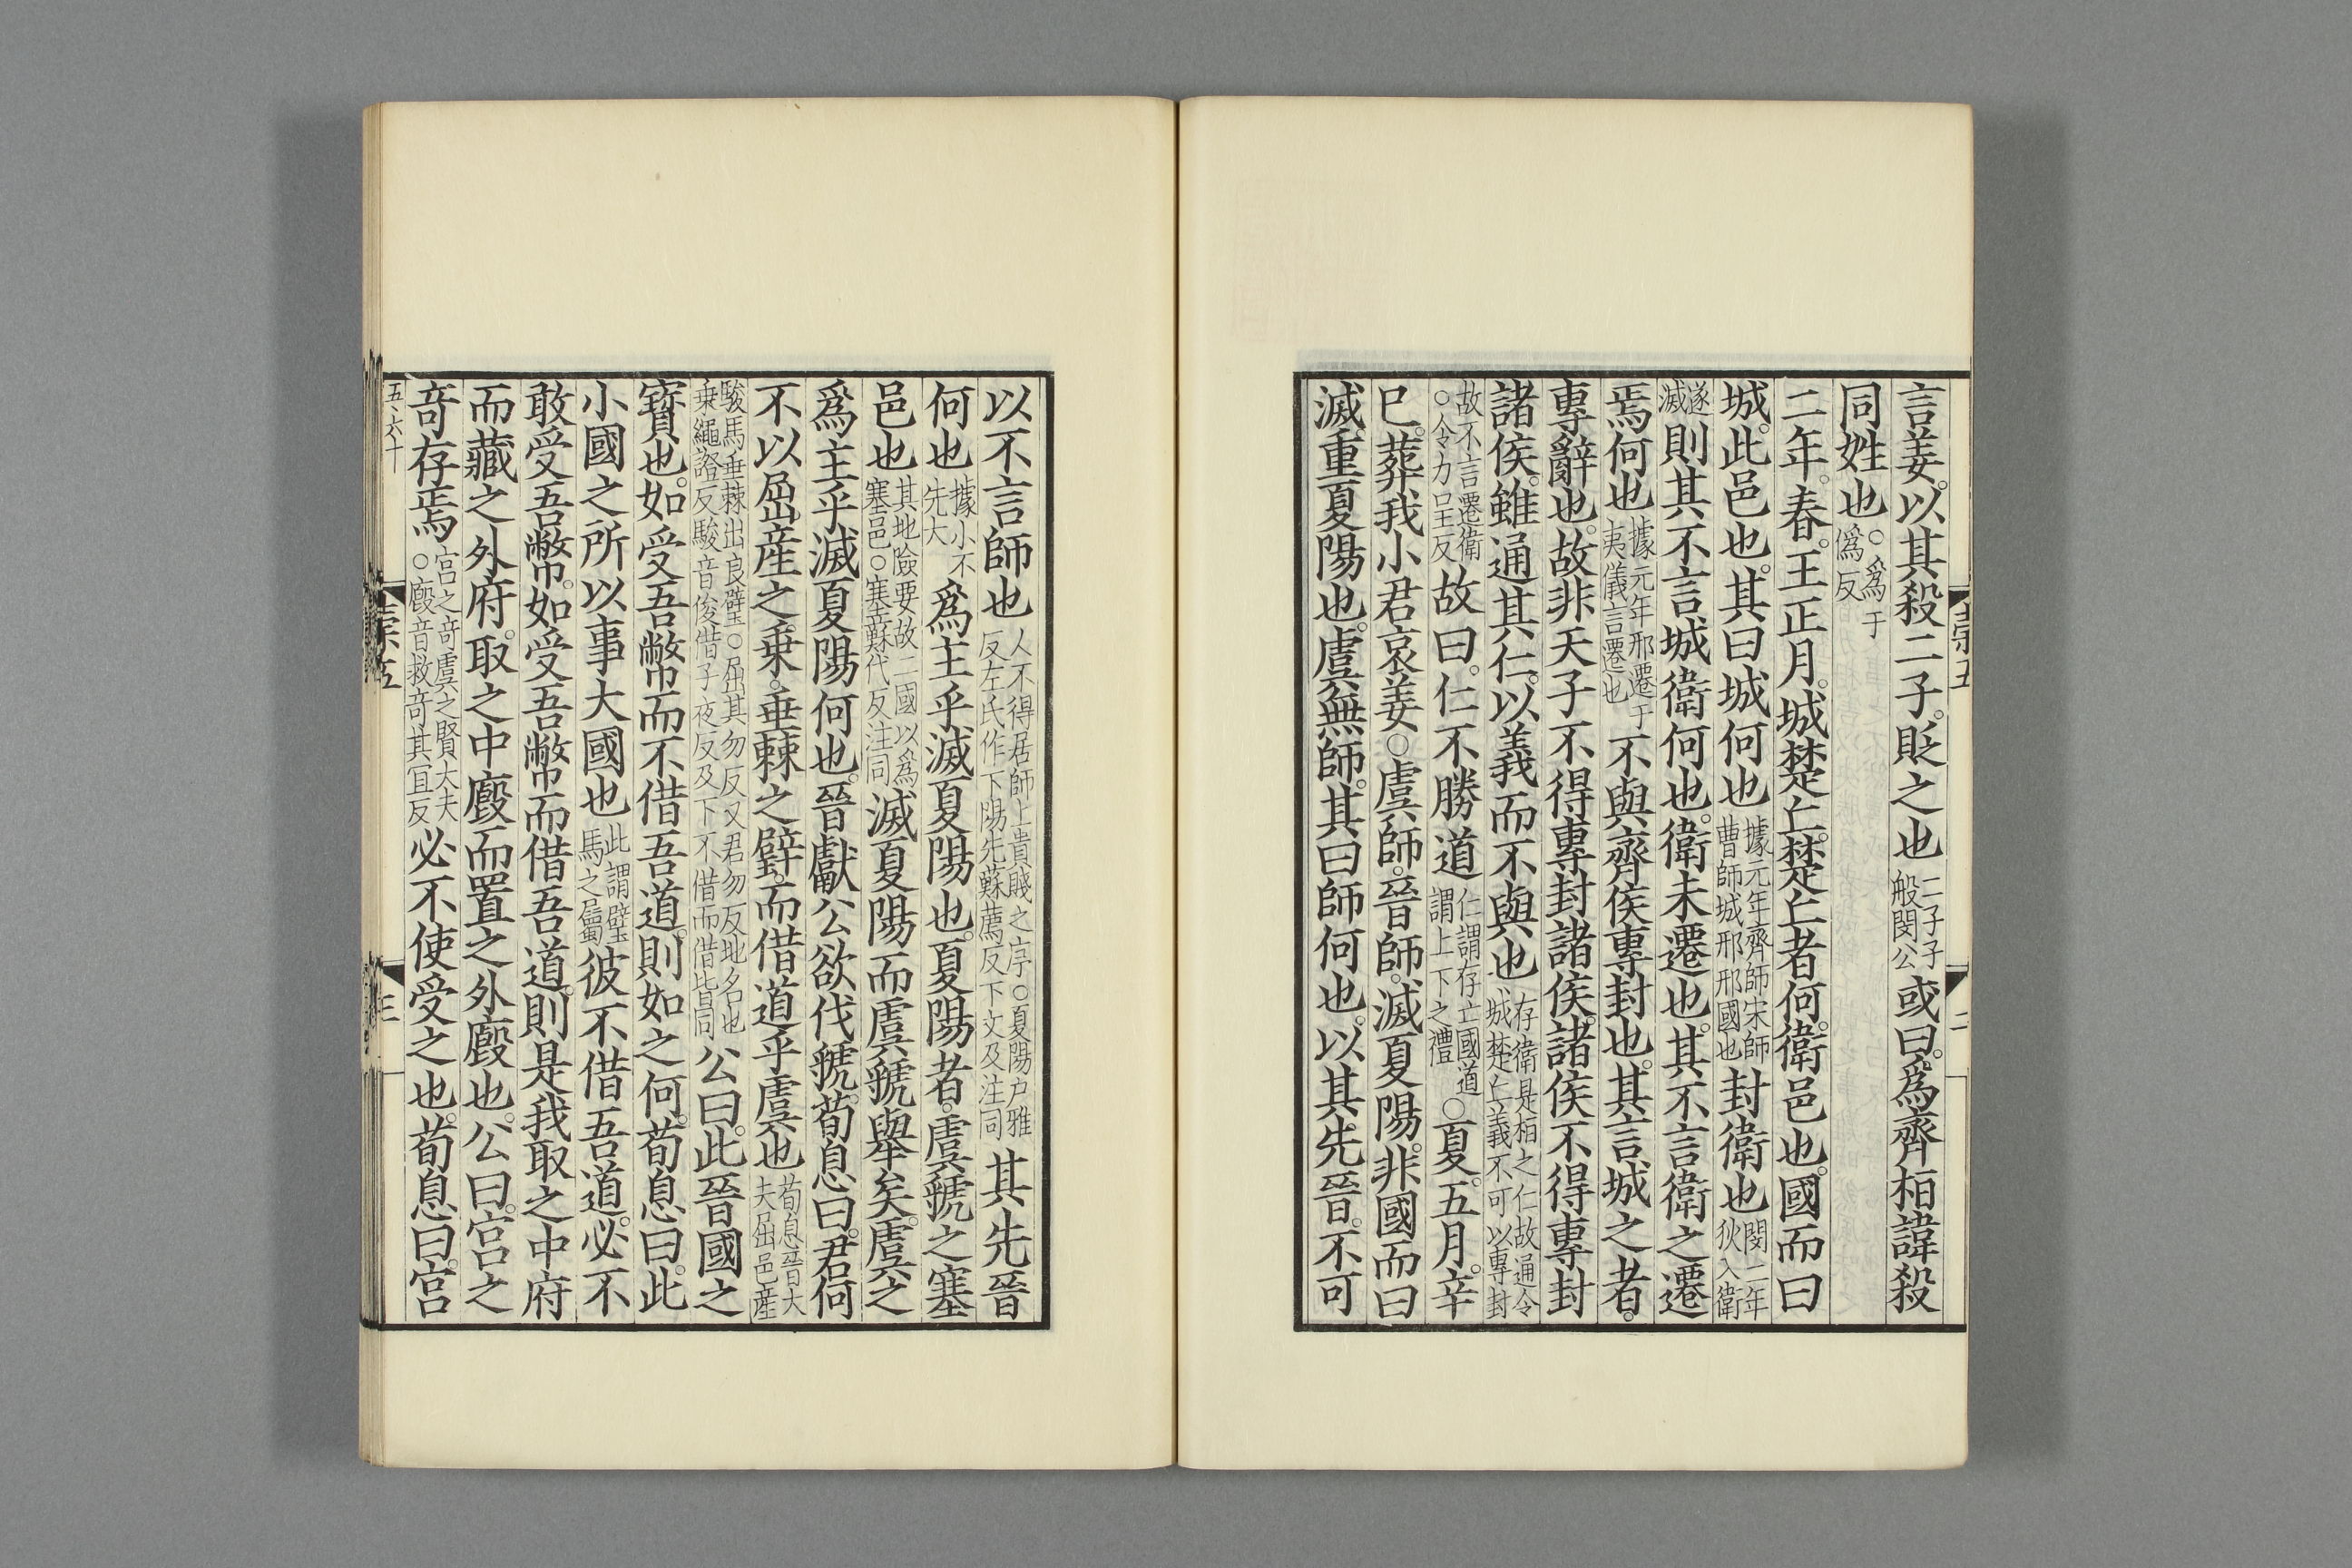 言姜以其殺二子貶之也二子子般閔公或曰爲齊桓諱殺
同姓也○爲于僞反
二年春王正月城楚丘楚丘者何衛邑也國而曰
城此邑也其曰城何也據元年齊師宋師曹師城邢邢國也封衛也閔二年狄入衛
遂滅則其不言城衛何也衛未遷也其不言衛之遷
焉何也據元年邢遷于夷儀言遷也不與齊侯專封也其言城之者
專辭也故非天子不得專封諸侯諸侯不得專封
諸侯雖通其仁以義而不與也存衛是桓之仁故通令城楚丘義不可以專封
故不言遷衛○令力呈反故曰仁不勝道仁謂存亡國道謂上下之禮○夏五月辛
巳葬我小君哀姜○虞師晉師滅夏陽非國而曰
滅重夏陽也虞無師其曰師何也以其先晉不可
以不言師也人不得居師上貴賤之序○夏陽户雅反左氏作下陽先蘇薦反下文及注同其先晉
何也據小不先大爲主乎滅夏陽也夏陽者虞虢之塞
邑也其地險要故二國以爲塞邑○塞蘇代反注同滅夏陽而虞虢舉矣虞之
爲主乎滅夏陽何也晉獻公欲伐虢荀息曰君何
不以屈産之乗垂棘之璧而借道乎虞也荀息晉大夫屈邑産
駿馬垂棘出良璧○屈其勿反又君勿反地名也乗繩證反駿音俊借子夜反及下不借而借皆同公曰此晉國之
寶也如受吾幣而不借吾道則如之何荀息曰此
小國之所以事大國也此謂璧馬之屬彼不借吾道必不
敢受吾幣如受吾幣而借吾道則是我取之中府
而藏之外府取之中廏而置之外廏也公曰宫之
竒存焉宫之竒虞之賢大夫○廏音救竒其宜反必不使受之也荀息曰宫